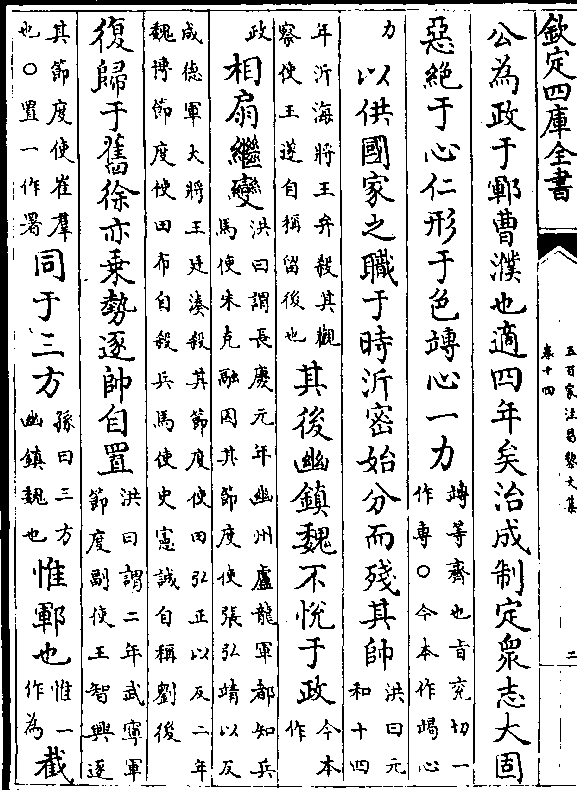 欽定四庫全書
五百家注昌黎文集
卷十四
二
公為政于鄆曹濮也適四年矣治成制定衆志大固
惡絶于心仁形于色竱心一力竱等齊也旨兖切一作專○今本作竭心
力以供國家之職于時沂密始分而殘其帥洪曰元和十四
年沂海將王弁殺其觀察使王遂自稱留後也其後幽鎮魏不悅于政今本作
政相扇繼變洪曰謂長慶元年幽州盧龍軍都知兵馬使朱克融因其節度使張弘靖以反
成德軍大將王廷湊殺其節度使田弘正以反二年魏博節度使田布自殺兵馬使史憲誠自稱劉後
復歸于舊徐亦乗勢逐帥自置洪曰謂二年武寧軍節度副使王智興逐
其節度使崔羣也○置一作署同于三方孫曰三方幽鎮魏也惟鄆也惟一作為截